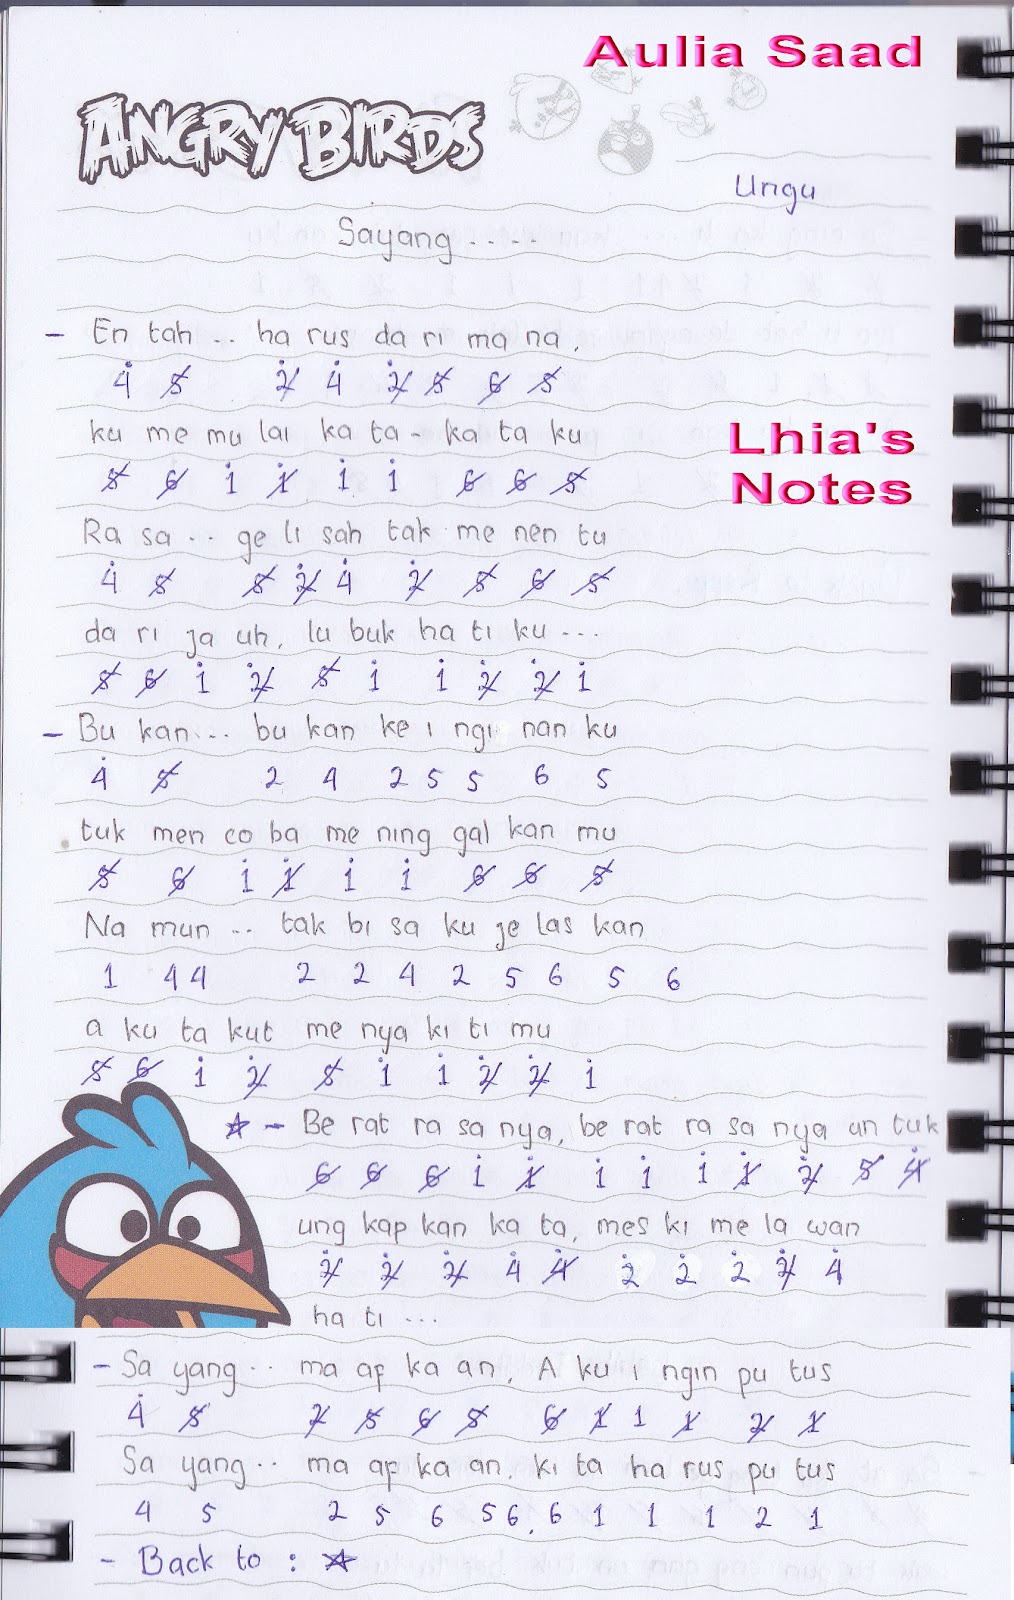 Aulia Saad
ANGRY BIRDS
Ungu
Sayang ....
- En tah .. ha rus da ri ma na,
4̇ 5̸ 2̸̇ 4̇ 2̸̇ 5̸ 6̸ 5̸
ku me mu lai ka ta - ka ta ku
5̸ 6̸ 1̇ 1̸̇ 1̇ 1̇ 6̸ 6̸ 5̸
Lhia's
Notes
Ra sa .. ge li sah tak me nen tu
4̇ 5̸ 5̸ 2̸̇ 4̇ 2̸̇ 5̸ 6̸ 5̸
da ri ja uh, lu buk ha ti ku ...
5̸ 6̸ 1̇ 2̸̇ 5̸ 1̇ 1̇ 2̸̇ 2̸̇ 1̇
- Bu kan ... bu kan ke i ngi nan ku
4̇ 5̸ 2 4 2 5 5 6 5
tuk men co ba me ning gal kan mu
5̸ 6̸ 1̇ 1̸̇ 1̇ 1̇ 6̸ 6̸ 5̸
Na mun .. tak bi sa ku je las kan
1 4 4 2 2 4 2 5 6 5 6
a ku ta kut me nya ki ti mu
5̸ 6̸ 1̇ 2̸̇ 5̸ 1̇ 1̇ 2̸̇ 2̸̇ 1̇
☆ - Be rat ra sa nya, be rat ra sa nya un tuk
6̸ 6̸ 6̸ 1̇ 1̸̇ 1̇ 1̇ 1̇ 1̸̇ 2̸̇ 5̸ 4̸̇
ung kap kan ka ta, mes ki me la wan
2̸̇ 2̸̇ 2̸̇ 4̇ 4̸̇ 2̇ 2̇ 2̇ 2̸̇ 4̇
ha ti ...
- Sa yang .. ma af ka an, A ku i ngin pu tus
4̇ 5̸ 2̸ 5̸ 6̸ 5̸ 6̸ 1̸ 1 1̸ 2̸ 1̸
Sa yang .. ma af ka an, ki ta ha rus pu tus
4 5 2 5 6 5 6, 6 1 1 1 2 1
- Back to : ☆